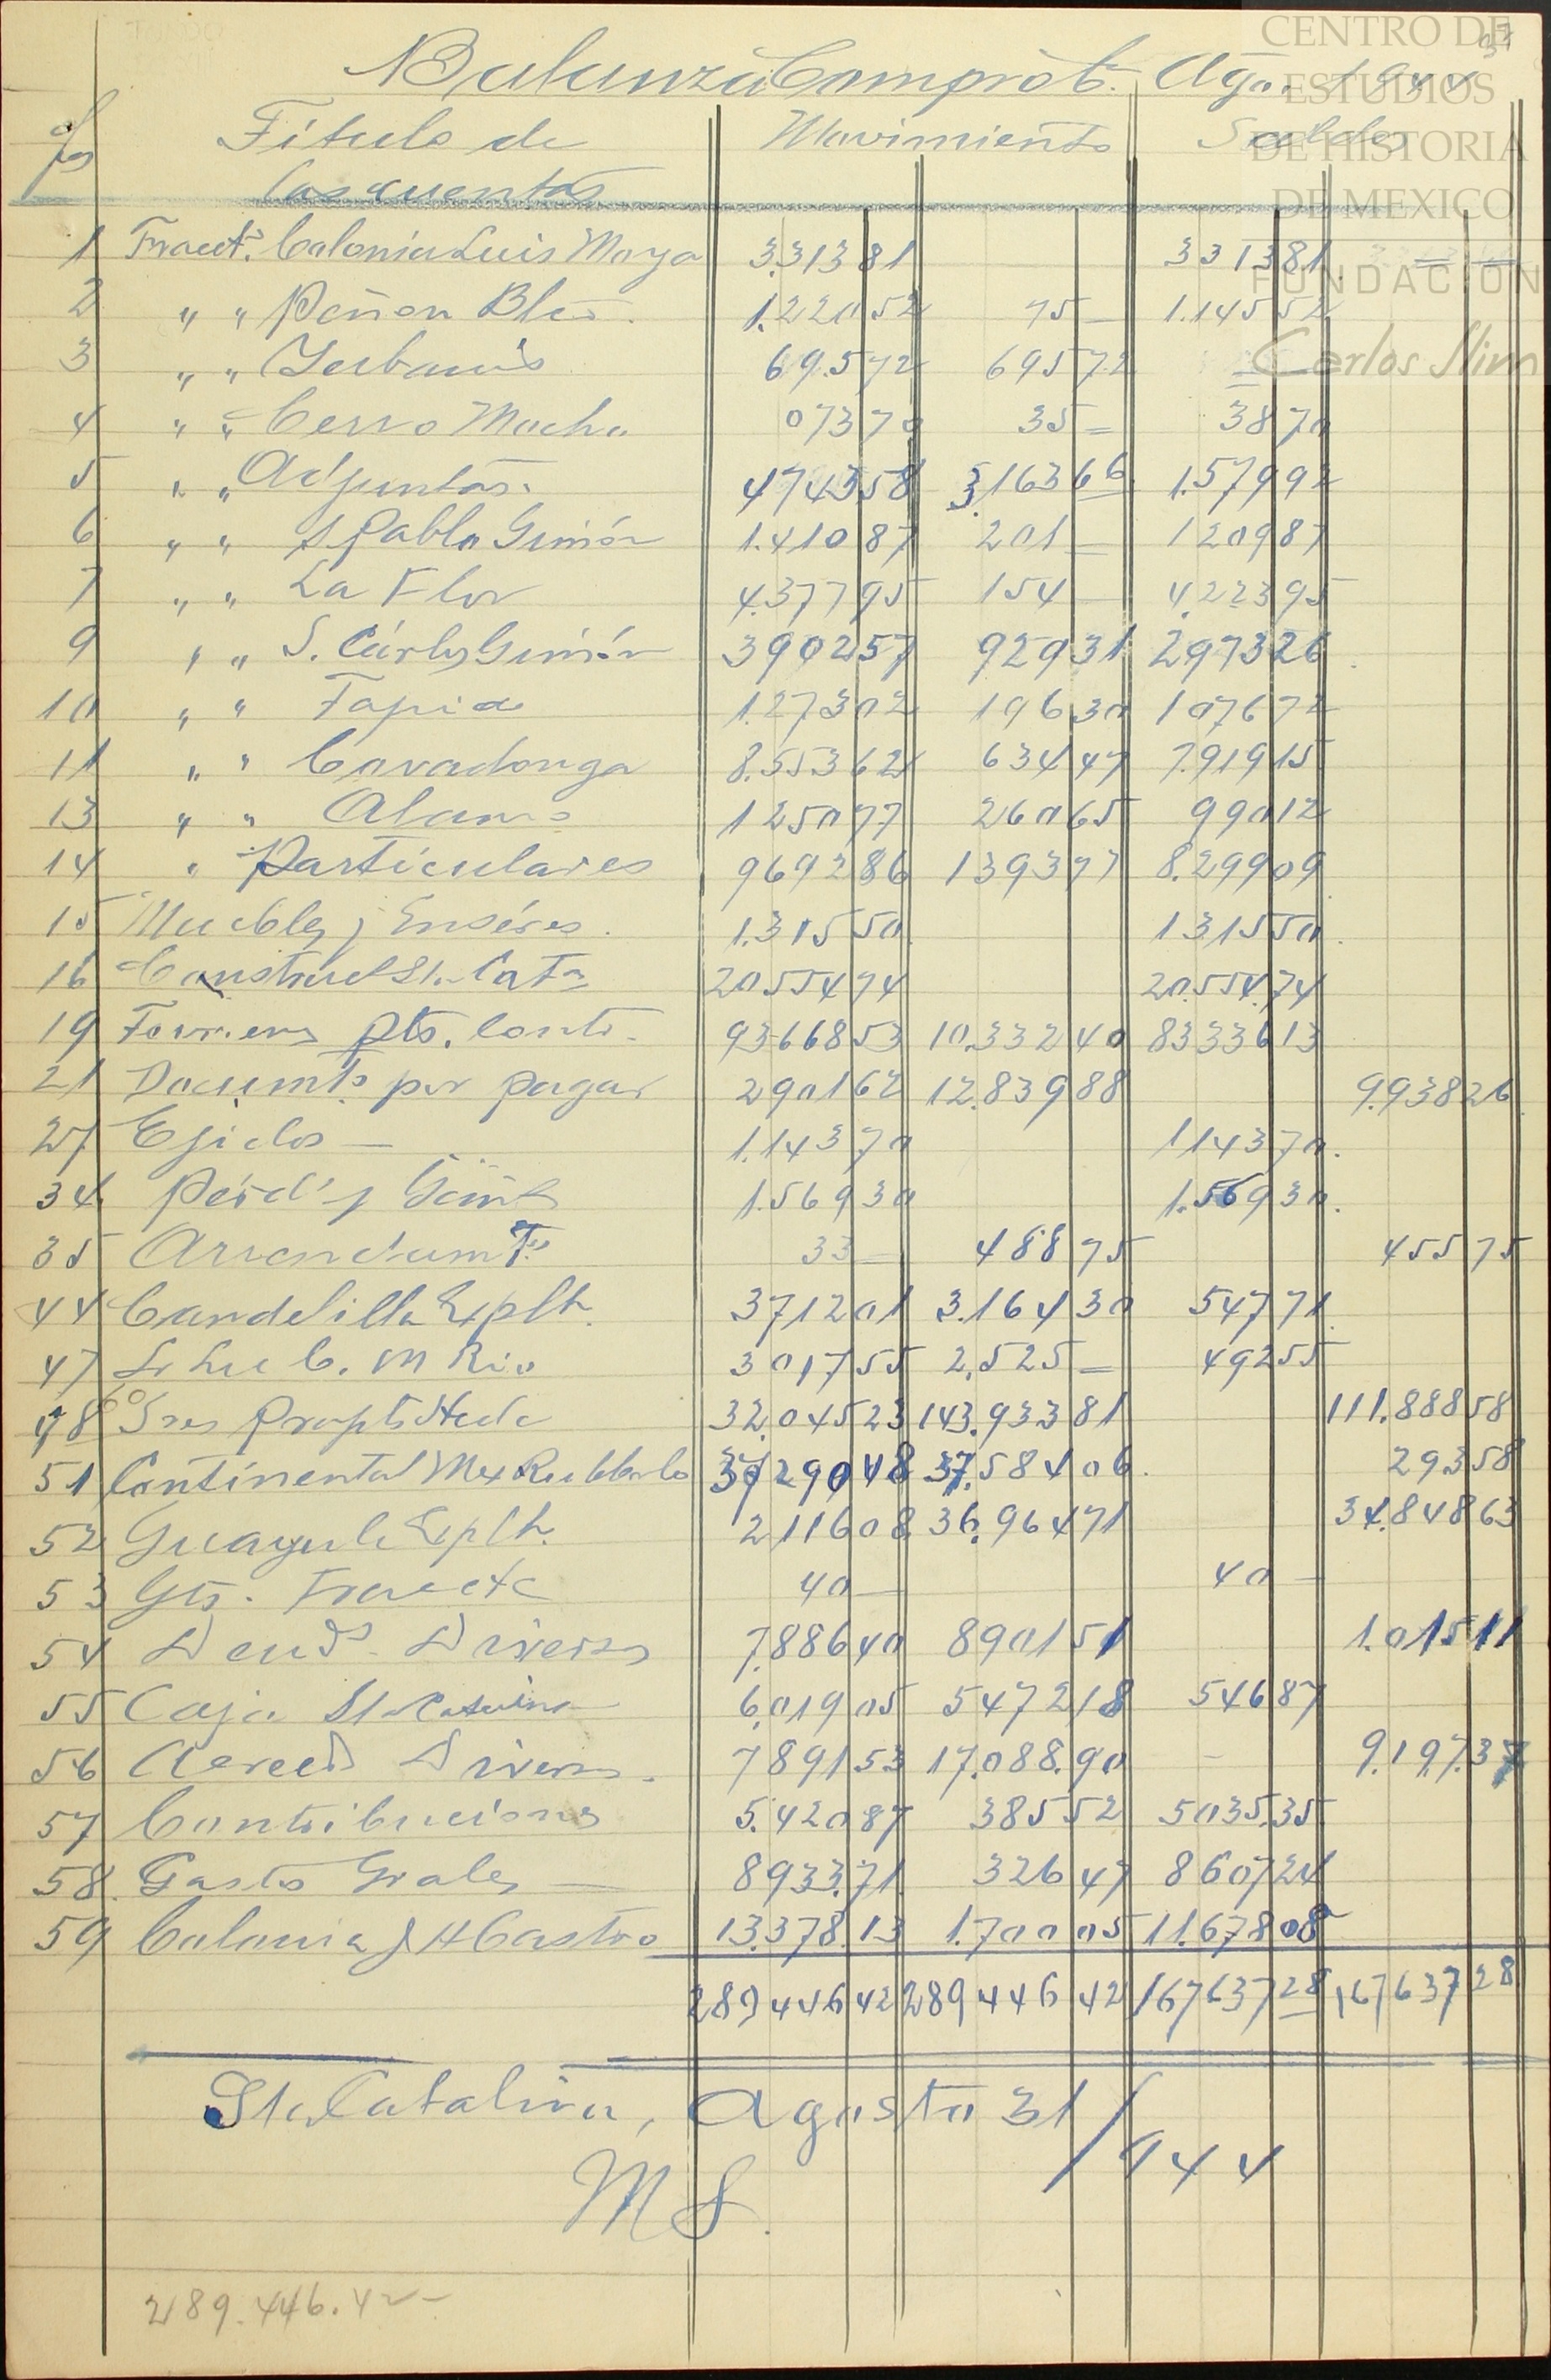 Balanza Comprob. Ago. 1944
CENTRO DE
ESTUDIOS
DE HISTORIA
DE MEXICO
FUNDACION
Carlos Slim
fs Título de Movimiento Saldos
las cuentas
1 Fracct. Colonia Luis Moya 3.313 81 3313 81
2 " " Peñon Blco. 1.220 52 75 — 1.145 52
3 " " Yerbanis 69.5 72 695 72 =
4 " " Cerro Mocho 073 70 35 = 38 70
5 " " Adjuntas. 4743 58 3.163 66 1.579 92
6 " " S Pablo Gunión 1.410 87 201 = 1209 87
7 " " La Flor 4.377 95 154 — 4.223 95
9 " " S. Cárlos Gunión 3902 57 929 31 2973 26
10 " " Tapias 1.273 02 196 30 1076 72
11 " " Covadonga 8.553 62 634 47 7.919 15
13 " " Alamo 1250 77 260 65 990 12
14 " Particulares 9692 86 1393 77 8.299 09
15 Muebles y Enséres. 1.315 50 1315 50
16 Construc Sta Cata 20554 74 20.554.74
19 Terrenos Pts. Cont. 93668 53 10.332 40 83336 13
21 Documts. por pagar 2901 62 12.839 88 9.938 26
27 Ejidos — 1.143 70 1143 70.
34 Perd's y Gan's 1.569 30 1.569 30.
35 Arrendamts. 33 — 488 75 455 75
44 Candelilla Explt. 3712 01 3.164 30 547 71
47 3017 55 2.525 — 492 55
48 Sres Propts Hcda 32.045 23 143.933 81 111.888 58
51 Continental Mex Rubber Co 37290 48 37.584 06 293 58
52 Guayule Explt. 2116 08 36.964 71 34.848 63
53 Gts. Fracctc 40 — 40 —
54 Deuds. Diversos 7.886 40 8901 51 1.015 11
55 Caja Sta Catarina 6.019 05 5472 18 546 87
56 Acreeds Diversos. 7891 53 17.088.90 - 9.197.37
57 Contribuciones 5.420 87 385 52 5035.35
58. Gastos Grales — 8933.71 326 47 8607 24
59 Colonia J H Castro 13.378.13 1.700 05 11.678 08
289446 42 289446 42 167637 28 167637 28
Sta Catalina, Agosto 31/944
M S.
289.446.42—